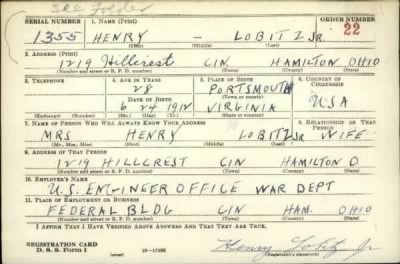 See Folder
SERIAL NUMBER 1. NAME (Print) ORDER NUMBER
1355 HENRY - LOBITZ Jr. 22
(First) (Middle) (Last)
2. ADDRESS (Print)
1219 Hillcrest CIN. HAMILTON OHIO
(Number and street or R. F. D. number) (Town) (County) (State)
3. TELEPHONE 4. AGE IN YEARS 5. PLACE OF BIRTH 6. COUNTRY OF CITIZENSHIP
28 PORTSMOUTH
DATE OF BIRTH (Town or county)
6 24 1912 VIRGINIA USA
(Exchange) (Number) (Mo.) (Day) (Yr.) (State or country)
7. NAME OF PERSON WHO WILL ALWAYS KNOW YOUR ADDRESS 8. RELATIONSHIP OF THAT PERSON
MRS HENRY LOBITZ Jr WIFE
(Mr., Mrs., Miss) (First) (Middle) (Last)
9. ADDRESS OF THAT PERSON
1219 HILLCREST CIN HAMILTON O
(Number and street or R. F. D. number) (Town) (County) (State)
10. EMPLOYER'S NAME
U.S. ENGINEER OFFICE WAR DEPT
11. PLACE OF EMPLOYMENT OR BUSINESS
FEDERAL BLDG CIN HAM. OHIO
(Number and street or R. F. D. number) (Town) (County) (State)
I AFFIRM THAT I HAVE VERIFIED ABOVE ANSWERS AND THAT THEY ARE TRUE.
REGISTRATION CARD
D. S. S. Form 1 Henry Lobitz Jr
(over) (Registrant's signature)